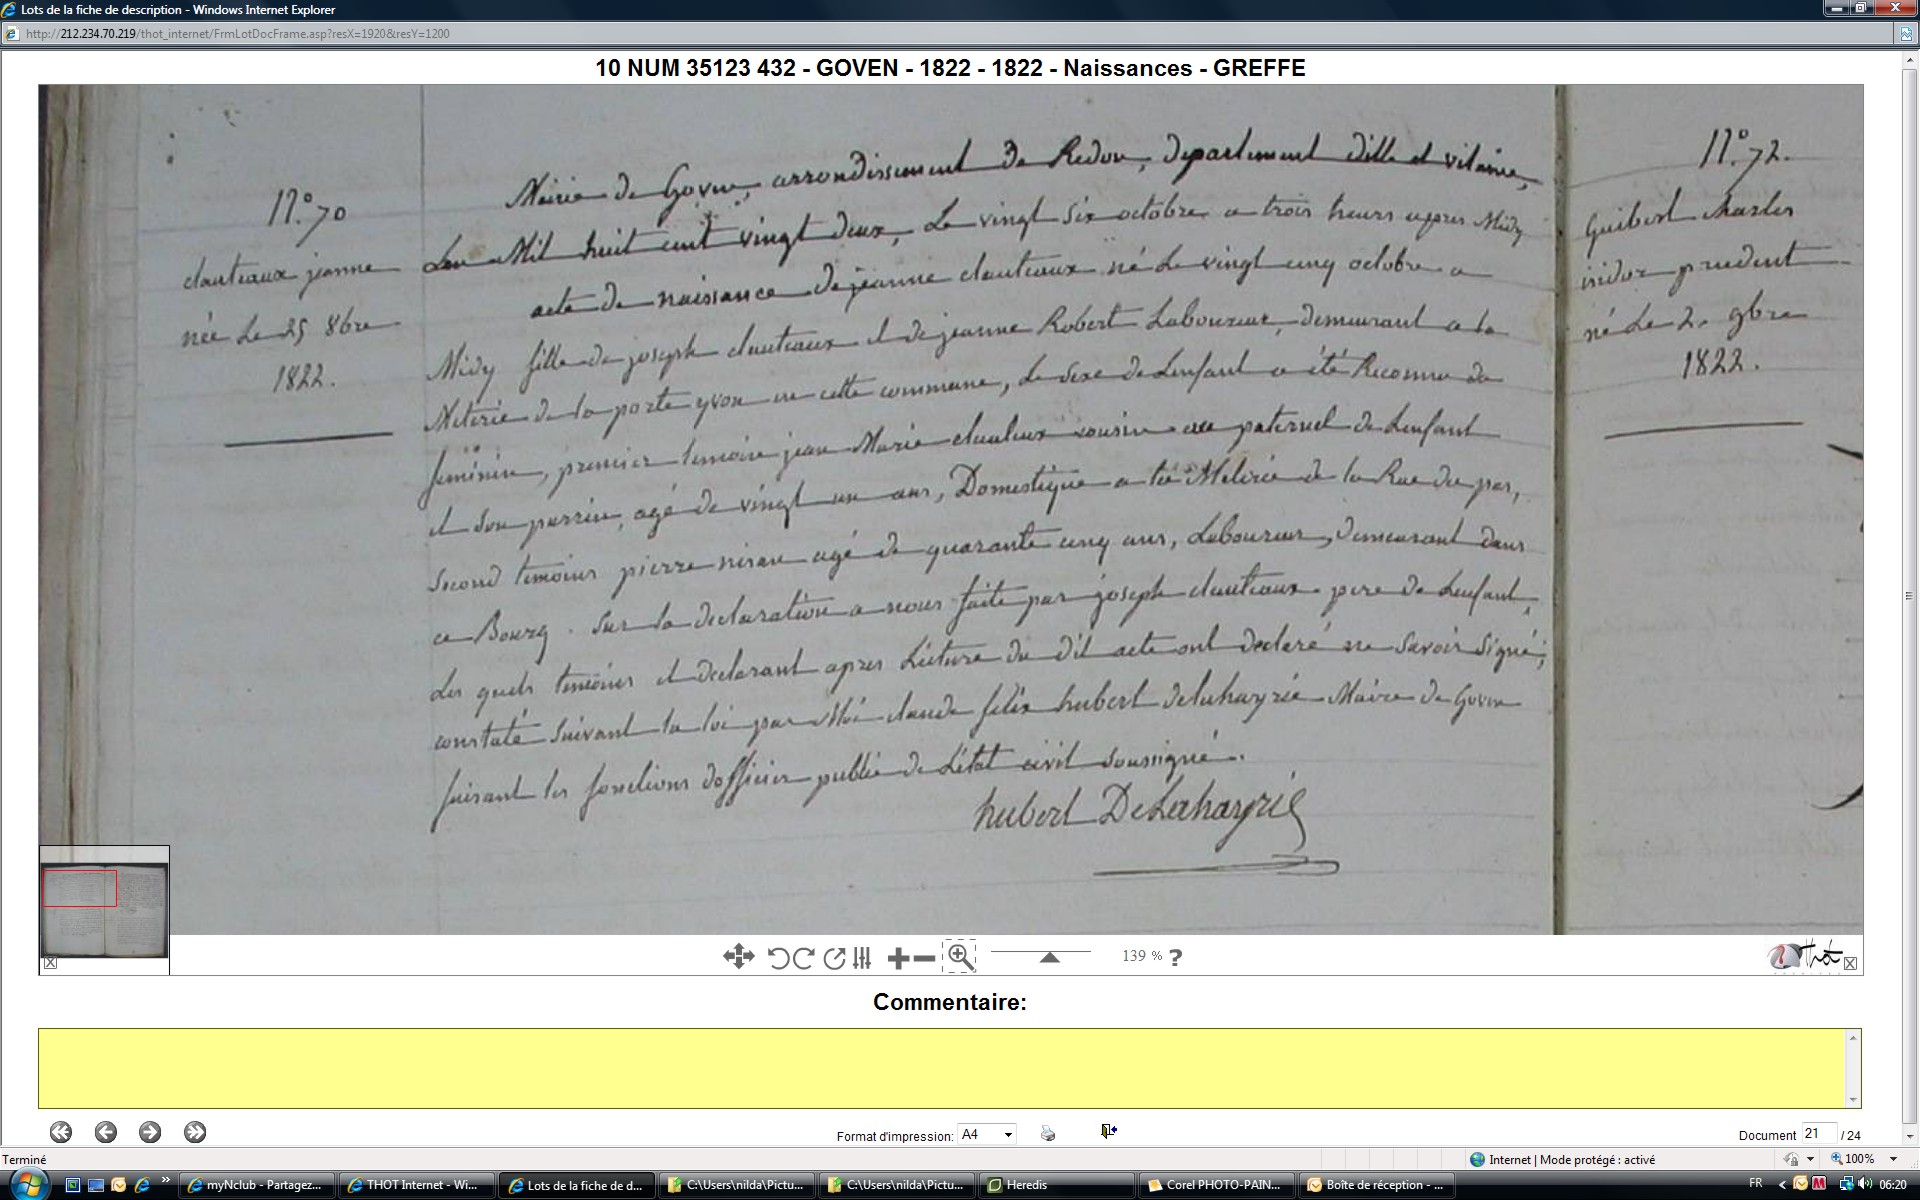 Lots de la fiche de description - Windows Internet Explorer
http://212.234.70.219/thot_internet/FrmLotDocFrame.asp?resX=1920&resY=1200
10 NUM 35123 432 - GOVEN - 1822 - 1822 - Naissances - GREFFE
N.° 70
clauteaux jeanne
née Le 25 8bre
1822.
Mairie de Goven, arrondissement de Redon, departement dille et vilaine,
Lan Mil huit cent vingt deux, Le vingt six octobre a trois heurs apres Midy
acte de naissance de jeanne clauteaux né Le vingt cinq octobre a
Midy fille de joseph clauteaux et de jeanne Robert Laboureur, demeurant a la
Meterie de la porte yvon en cette commune, Le sexe de Lenfant a été Reconnu du
feminin, premier temoin jean Marie clauteux cousin au paternel de Lenfant
et son parrin, agé de vingt un ans, Domestique a la Meterie de la Rue du pas,
Second temoins pierre agé de quarante cinq ans, Laboureur, demeurant dans
ce Bourg. Sur la declaration a nous faite par joseph clauteaux pere de Lenfant,
Les quels temoins et declarant apres Lecture du dit acte ont declaré ne savoir signé;
constaté suivant la loi par Moi claude felix hubert delaharyrie Maire de Goven
faisant les fonctions dofficier public de Létat civil soussigné.
hubert Delaharyrie
N.° 72.
Guibert charles
isidor prudent
né Le 2. 9bre
1822.
139 % ?
Thot
Commentaire:
Format d'impression: A4
Document 21 / 24
Terminé
Internet | Mode protégé : activé
100%
myNclub - Partagez...
THOT Internet - Wi...
Lots de la fiche de d...
C:\Users\nilda\Pictu...
C:\Users\nilda\Pictu...
Heredis
Corel PHOTO-PAIN...
Boîte de réception - ...
FR
06:20